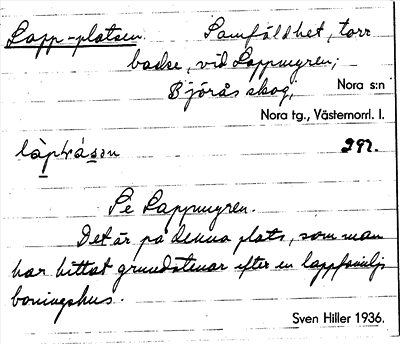 Lapp-platsen. Samfälldhet, torr
backe, vid Lappmyren;
Björås skog, Nora s:n
Nora tg., Västernorrl. l.
297.
Se Lappmyren.
Det är på denna plats, som man
har hittat grundstenar efter en lappfamiljs
boningshus.
Sven Hiller 1936.